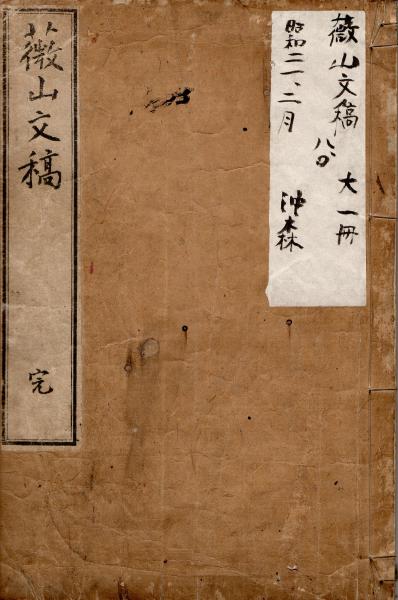 薇山文稿 八、〇 大一冊
昭和二一、二月 沖森
薇山文稿 完